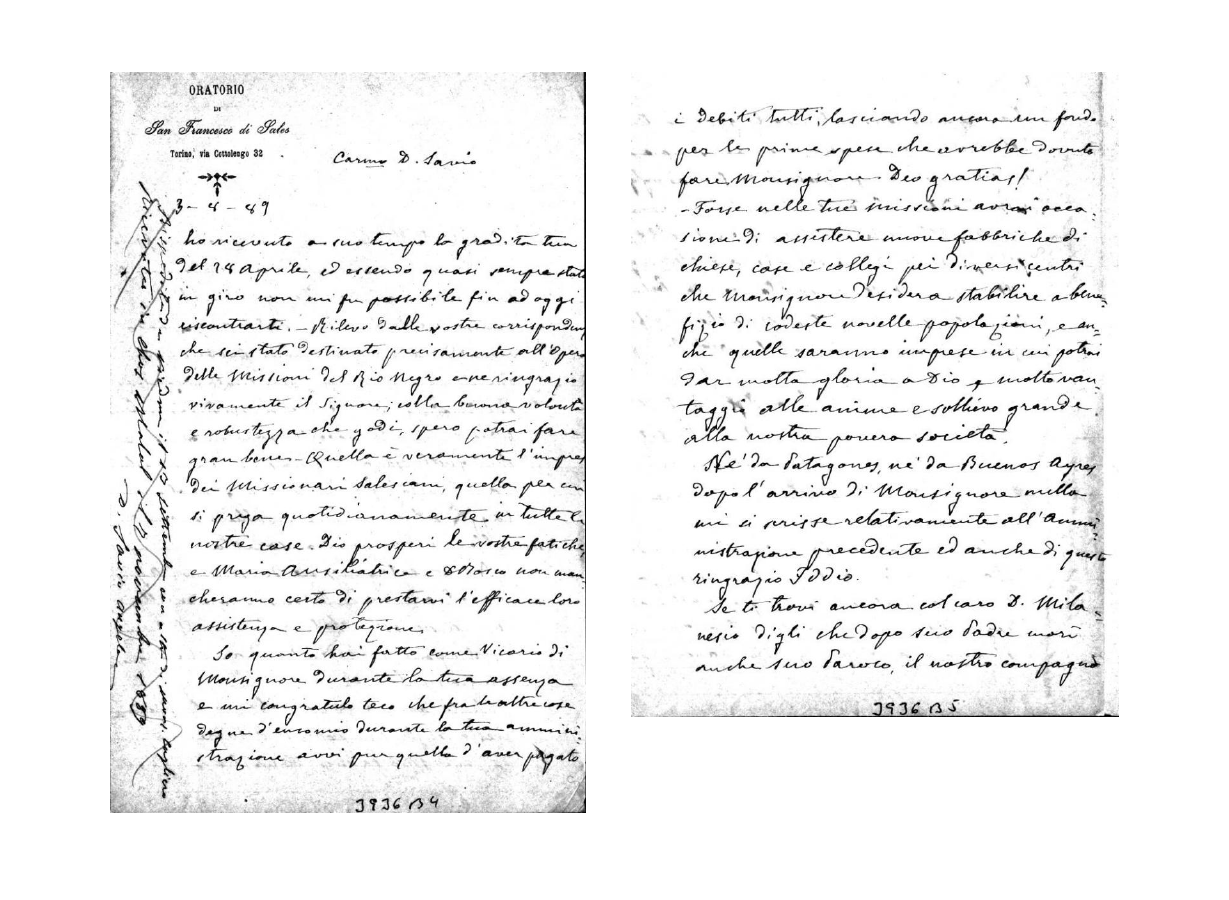 ORATORIO
DI
San Francesco di Sales
Torino, via Cottolengo 32
Carmo D. Savio
3-8-89
ho ricevuto a suo tempo la gradita tua
del 28 Aprile, ed essendo quasi sempre stato
in giro non mi fu possibile fin ad oggi
riscontrarti. - Rilevo dalle vostre corrisponden
che sei stato destinato precisamente all'Opera
delle Missioni del Rio Negro e ne ringrazio
vivamente il Signore; colla buona volontà
e robustezza che godi, spero potrai fare
gran bene - Quella è veramente l'impres
dei Missionari Salesiani, quella per cui
si prega quotidianamente in tutte le
nostre case. Dio prosperi le vostre fatiche
e Maria Ausiliatrice e D Bosco non man
cheranno certo di prestarvi l'efficace loro
assistenza e protezione.
So quanto hai fatto come Vicario di
Monsignore durante la tua assenza
e mi congratulo teco che fra le altre cose
degne d'encomio durante la tua ammini-
strazione avvi pur quella d'aver pagato
3936 B4
Ricevuta in el 12 novembre 1889
D. Savio Angelo
Rispedita il 20 settembre con Cagliero
i debiti tutti, lasciando ancora un fondo
per le prime spese che avrebbe dovuto
fare Monsignore. Deo gratias!
- Forse nelle tue missioni avrai occa-
sione di assistere nuove fabbriche di
chiese, case e collegi pei diversi centri
che Monsignore desidera stabilire a bene-
fizio di codeste novelle popolazioni, e an-
che quelle saranno imprese in cui potrai
dar molta gloria a Dio e molto van-
taggio alle anime e sollievo grande
alla nostra povera società.
Nè da Patagones, nè da Buenos Ayres
dopo l'arrivo di Monsignore nulla
mi si scrisse relativamente all'Ammi-
nistrazione precedente ed anche di questo
ringrazio Iddio.
Se ti trovi ancora col caro D. Mila-
nesio digli che dopo suo Padre morì
anche suo Paroco, il nostro compagno
3936 B5